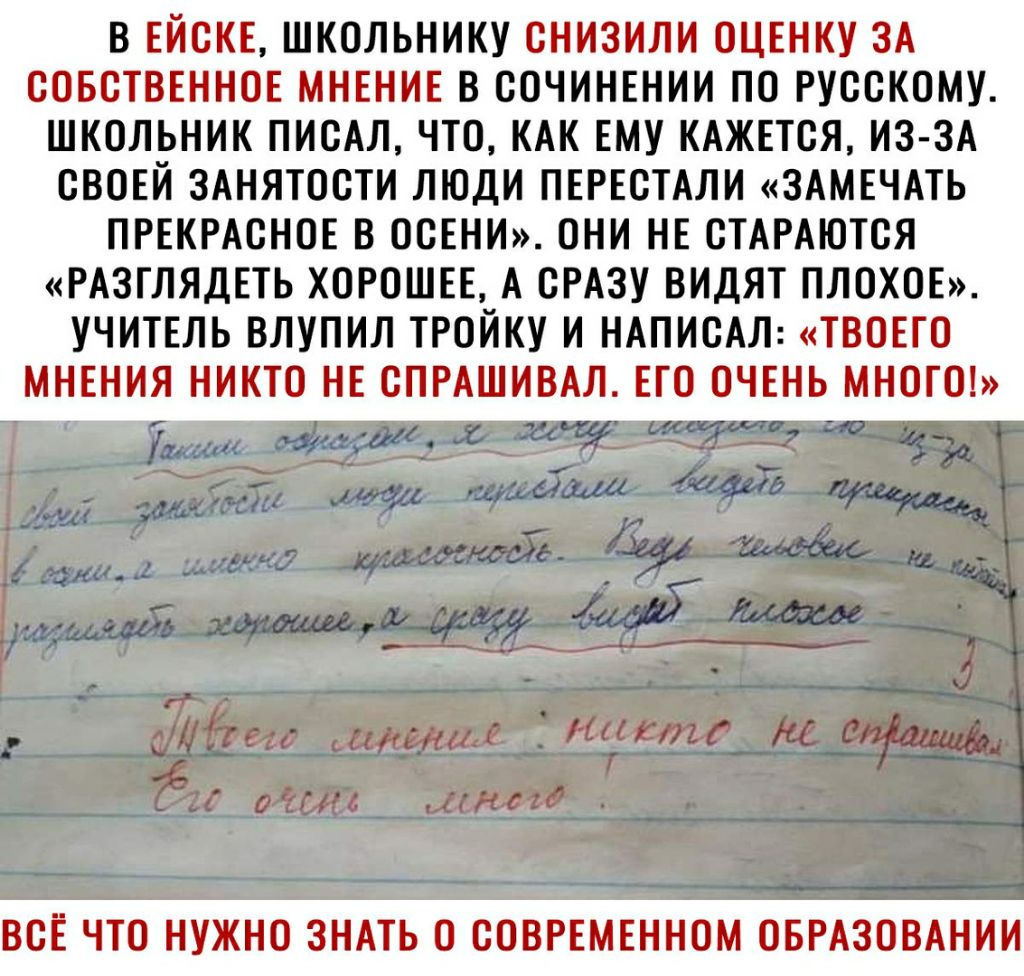 В ЕЙСКЕ, ШКОЛЬНИКУ СНИЗИЛИ ОЦЕНКУ ЗА
СОБСТВЕННОЕ МНЕНИЕ В СОЧИНЕНИИ ПО РУССКОМУ.
ШКОЛЬНИК ПИСАЛ, ЧТО, КАК ЕМУ КАЖЕТСЯ, ИЗ-ЗА
СВОЕЙ ЗАНЯТОСТИ ЛЮДИ ПЕРЕСТАЛИ «ЗАМЕЧАТЬ
ПРЕКРАСНОЕ В ОСЕНИ». ОНИ НЕ СТАРАЮТСЯ
«РАЗГЛЯДЕТЬ ХОРОШЕЕ, А СРАЗУ ВИДЯТ ПЛОХОЕ».
УЧИТЕЛЬ ВЛУПИЛ ТРОЙКУ И НАПИСАЛ: «ТВОЕГО
МНЕНИЯ НИКТО НЕ СПРАШИВАЛ. ЕГО ОЧЕНЬ МНОГО!»
Таким образом, я хочу сказать, из-за
свой занятости люди перестали видеть прекрасно
в осени, а именно красочность. Ведь человек не
разглядеть хорошее, а сразу видит плохое
3
Твоего мнения никто не спрашивал
Его очень много!
ВСЁ ЧТО НУЖНО ЗНАТЬ О СОВРЕМЕННОМ ОБРАЗОВАНИИ